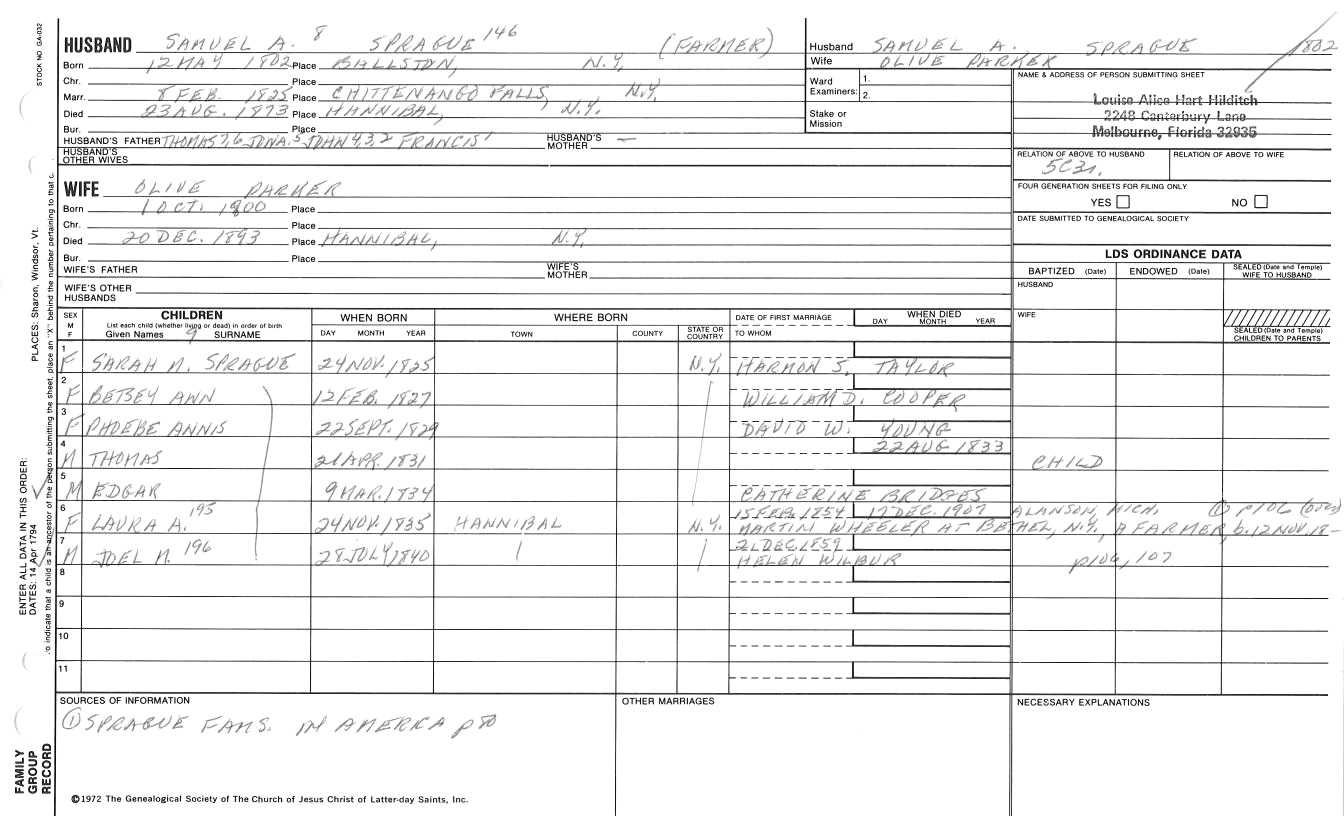 STOCK NO. GA-032
HUSBAND SAMUEL A. 8 SPRAGUE 146 (FARMER)
Born 12 MAY 1802 Place BALLSTON, N.Y.
Chr. Place
Marr. 8 FEB. 1825 Place CHITTENANGO FALLS, N.Y.
Died 23 AUG. 1873 Place HANNIBAL, N.Y.
Bur. Place
HUSBAND'S FATHER THOMAS 7,6 JONA. 5 JOHN 4,3,2 FRANCIS 1 HUSBAND'S MOTHER —
HUSBAND'S OTHER WIVES
WIFE OLIVE PARKER
Born 1 OCT. 1800 Place
Chr. Place
Died 20 DEC. 1893 Place HANNIBAL, N.Y.
Bur. Place
WIFE'S FATHER WIFE'S MOTHER
WIFE'S OTHER HUSBANDS
Husband SAMUEL A. SPRAGUE 1802
Wife OLIVE PARKER
Ward Examiners: 1.
2.
Stake or Mission
NAME & ADDRESS OF PERSON SUBMITTING SHEET
Louise Alice Hart Hilditch
2248 Canterbury Lane
Melbourne, Florida 32935
RELATION OF ABOVE TO HUSBAND RELATION OF ABOVE TO WIFE
5C3r.
FOUR GENERATION SHEETS FOR FILING ONLY
YES NO
DATE SUBMITTED TO GENEALOGICAL SOCIETY
LDS ORDINANCE DATA
BAPTIZED (Date) ENDOWED (Date) SEALED (Date and Temple) WIFE TO HUSBAND
HUSBAND
WIFE
SEALED (Date and Temple) CHILDREN TO PARENTS
SEX M F CHILDREN WHEN BORN WHERE BORN DATE OF FIRST MARRIAGE WHEN DIED
List each child (whether living or dead) in order of birth
Given Names 9 SURNAME DAY MONTH YEAR TOWN COUNTY STATE OR COUNTRY TO WHOM DAY MONTH YEAR
1 F SARAH M. SPRAGUE 24 NOV. 1825 N.Y. HARMON S. TAYLOR
2 F BETSEY ANN 12 FEB. 1827 WILLIAM D. COOPER
3 F PHOEBE ANNIS 22 SEPT. 1829 DAVID W. YOUNG
4 M THOMAS 21 APR. 1831 22 AUG 1833 CHILD
5 M EDGAR 9 MAR. 1834 CATHERINE BRIDGES
6 F LAURA A. 195 24 NOV. 1835 HANNIBAL N.Y. 15 FEB. 1854 17 DEC. 1907 ALANSON, MICH. ① p106
MARTIN WHEELER AT BETHEL, N.Y. A FARMER, b. 12 NOV. 18–
7 M JOEL M. 196 28 JULY 1840 21 DEC. 1859
HELEN WILBUR p106, 107
8
9
10
11
SOURCES OF INFORMATION OTHER MARRIAGES NECESSARY EXPLANATIONS
① SPRAGUE FAMS. IN AMERICA p
©1972 The Genealogical Society of The Church of Jesus Christ of Latter-day Saints, Inc.
FAMILY GROUP RECORD
ENTER ALL DATA IN THIS ORDER:
DATES: 14 Apr 1794
PLACES: Sharon, Windsor, Vt.
To indicate that a child is an ancestor of the person submitting the sheet, place an "X" behind the number pertaining to that c